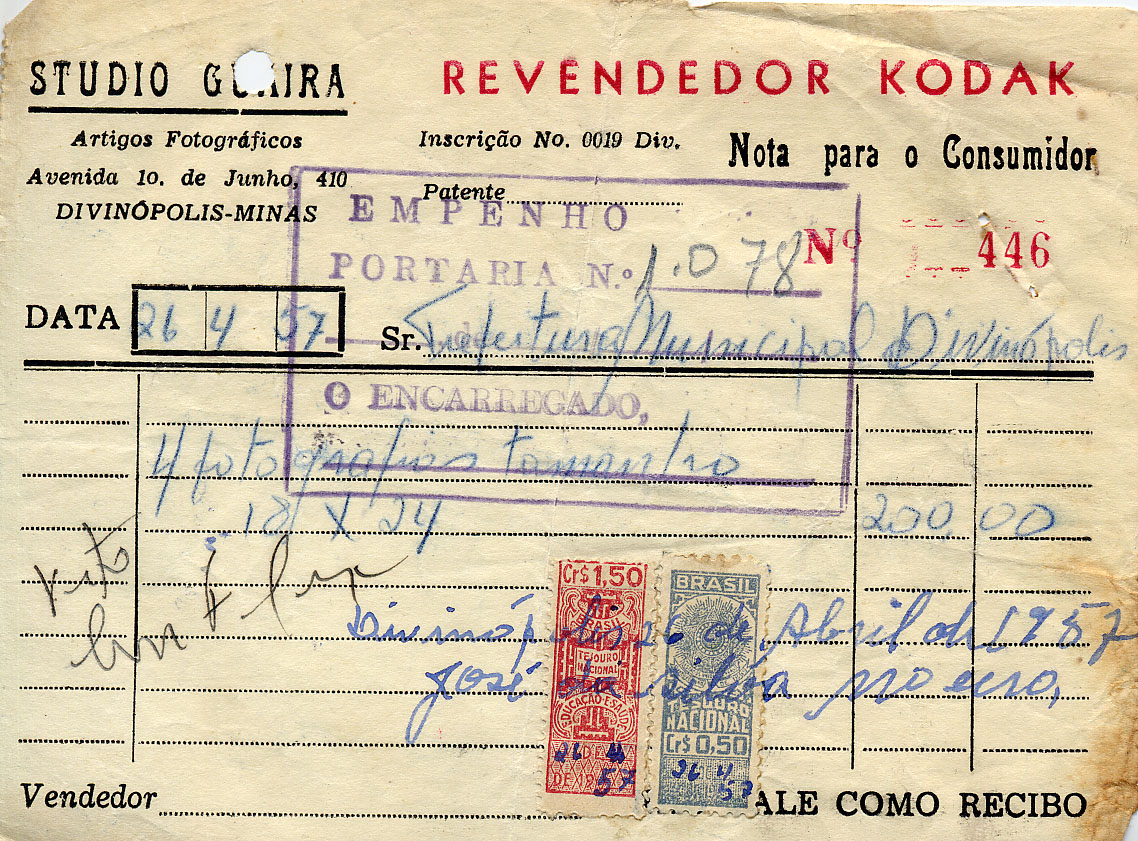 STUDIO GUAIRA
REVENDEDOR KODAK
Artigos Fotográficos
Inscrição No. 0019 Div.
Nota para o Consumidor
Avenida 1o. de Junho, 410
Patente
DIVINÓPOLIS-MINAS
EMPENHO
PORTARIA N.º 1.078
Nº 446
DATA 26 4 57
Sr. Prefeitura Municipal Divinópolis
O ENCARREGADO,
4 fotografias tamanho
18 X 24 200,00
visto
Cr$ 1,50
BRASIL
TESOURO
NACIONAL
EDUCAÇÃO E SAÚDE
26 4
57
BRASIL
TESOURO
NACIONAL
Cr$ 0,50
26 4
57
Divinópolis 26 de Abril de 1957
José da Silva
Vendedor
ALE COMO RECIBO